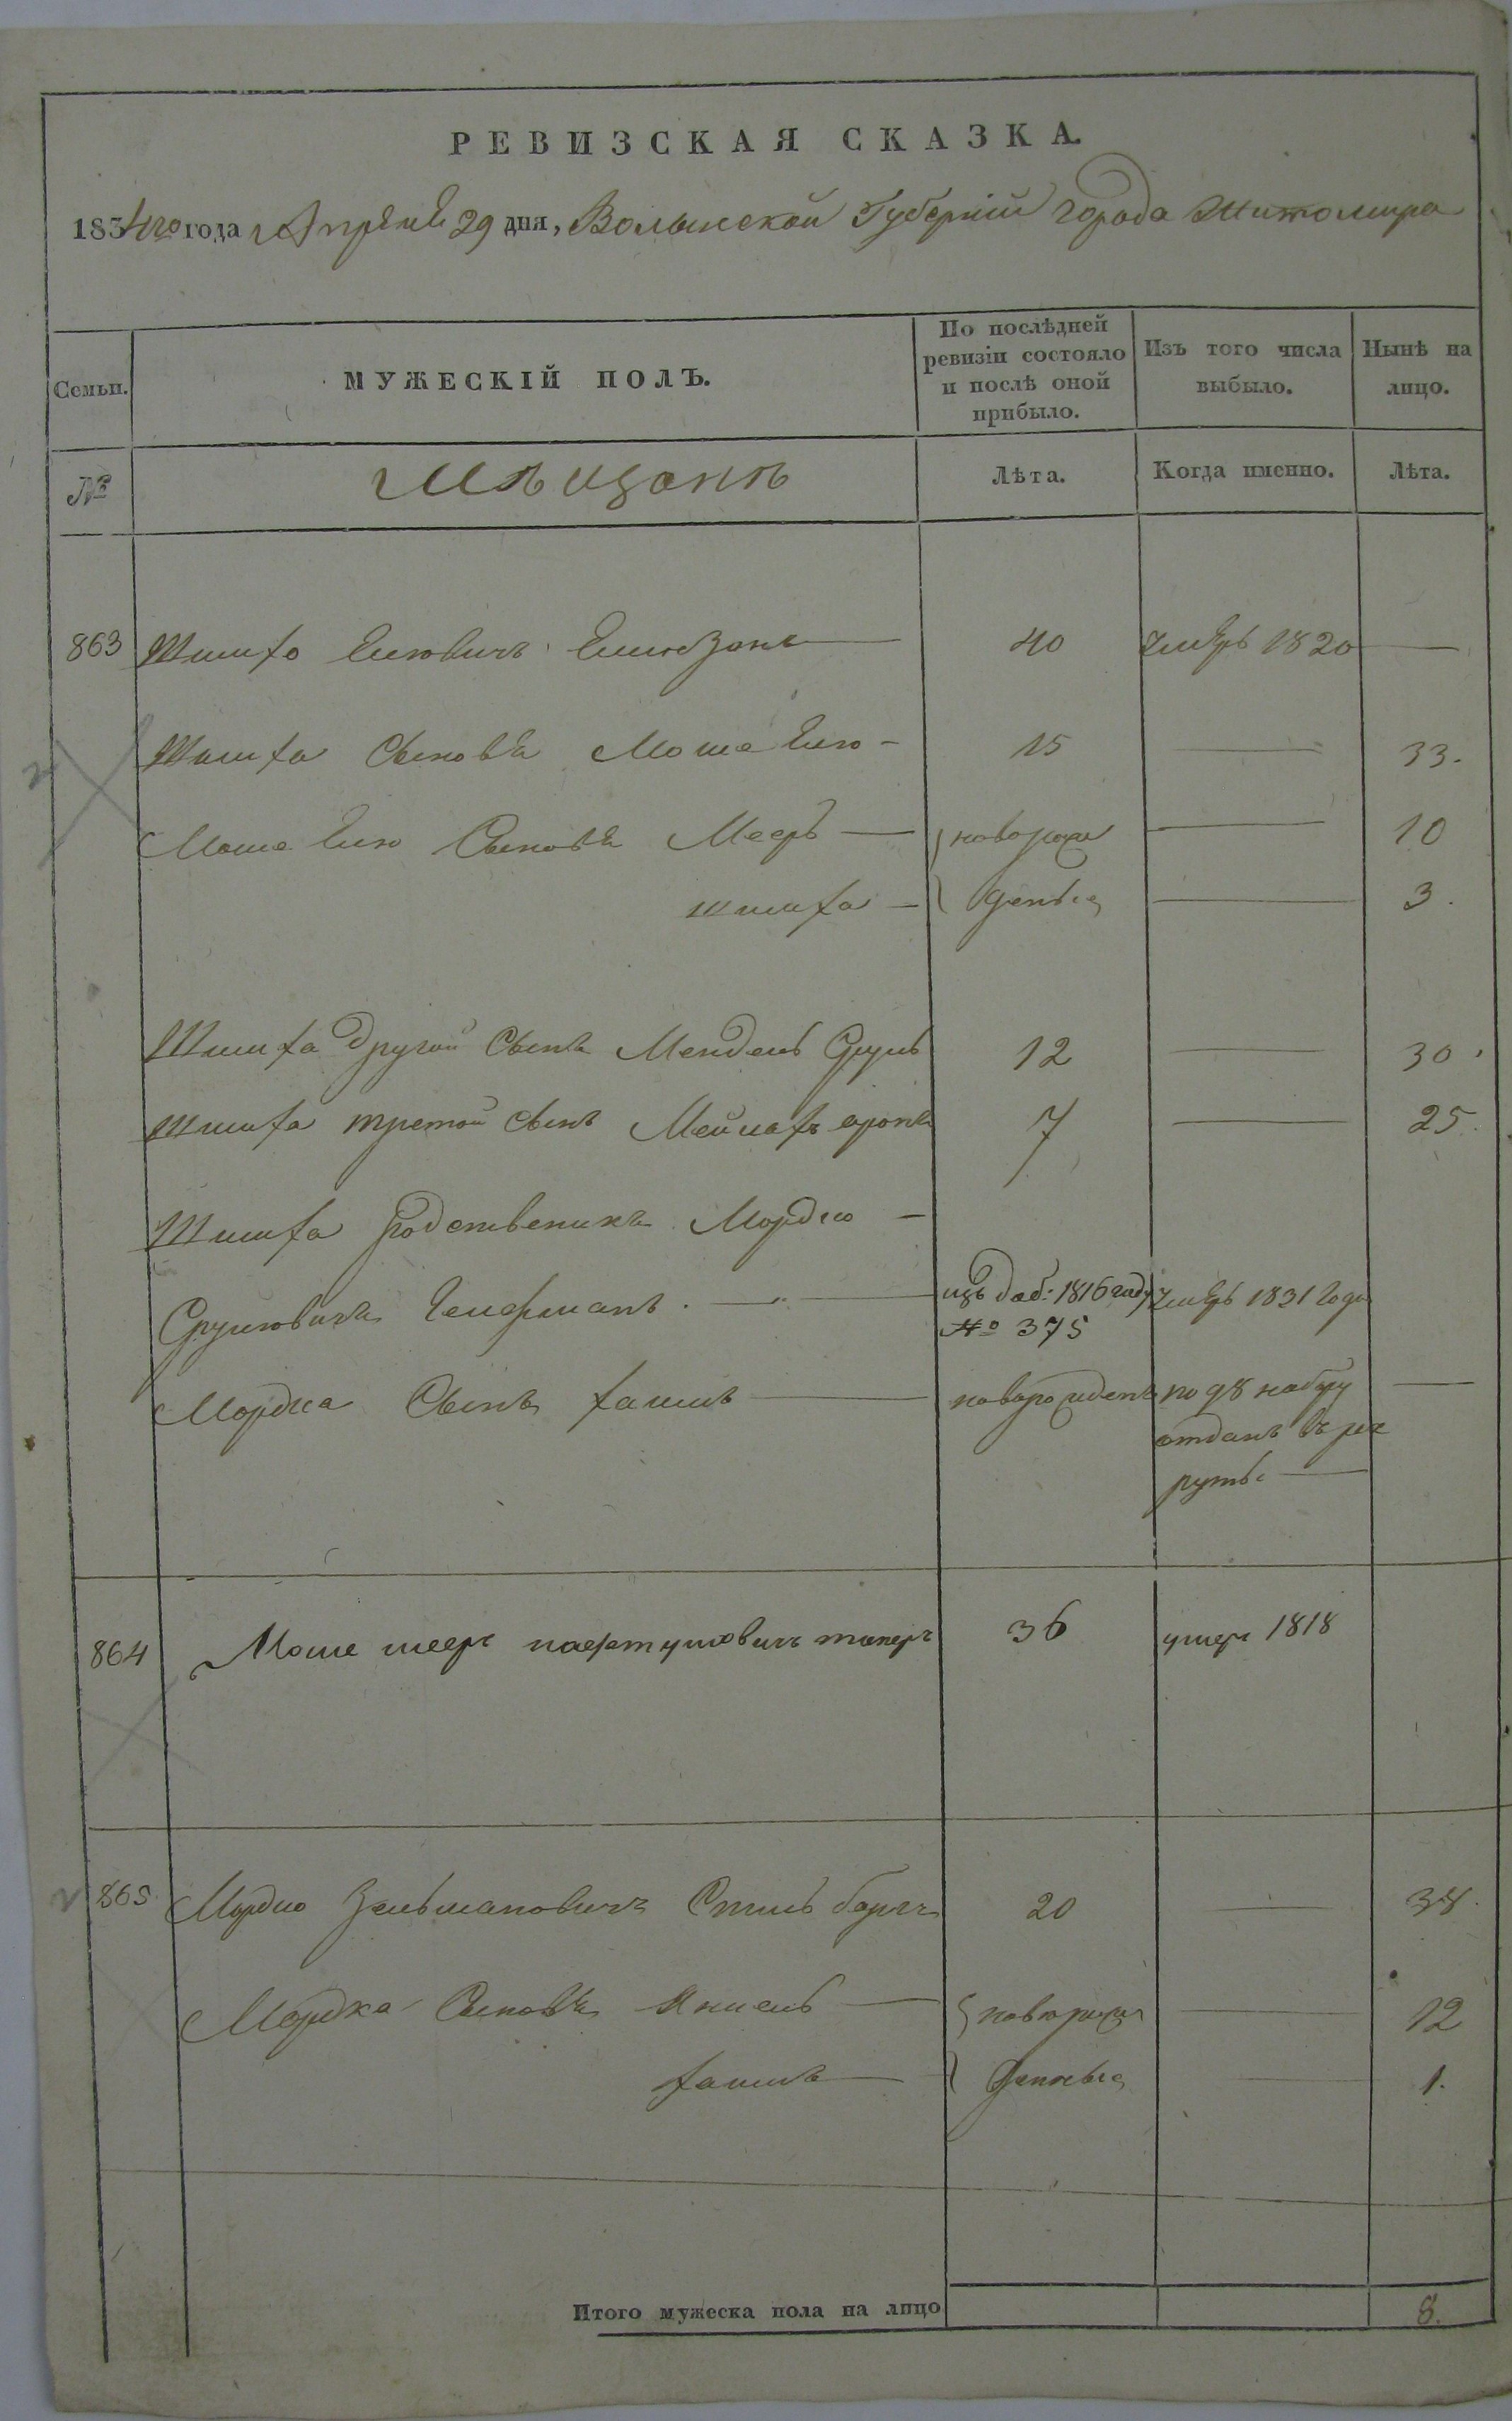 РЕВИЗСКАЯ СКАЗКА.
1834го года Апреля 29 дня, Волынской Губерніи города Житомира
Семьи. МУЖЕСКІЙ ПОЛЪ. По послѣдней ревизіи состояло и послѣ оной прибыло. Изъ того числа выбыло. Нынѣ на лицо.
№ Мѣщанъ Лѣта. Когда именно. Лѣта.
863 Шліома Елиовичъ 40 умеръ 1820 —
Сыновья Моше Елио - 15 — 33.
Моше Елио Сыновья Мееръ — новорож — 10
— денные — 3.
другой Сынъ Мендель Сруль 12 — 30.
третой сынъ аронъ 7 — 25.
родственикъ Мордко —
Срулиовичъ Гелфманъ. — изъ доб: 1816 году умеръ 1831 года
№ 375
Мордка Сынъ Хаимъ — новорожденъ по 98 набору —
отданъ въ рек
руты —
864 Моше меер нафтулиовичъ 36 умеръ 1818
865 Мордко Зельмановичъ 20 — 38.
Мордка Сыновья Янкель — новорож — 12
Хаимъ — денные — 1.
Итого мужеска пола на лицо 8.